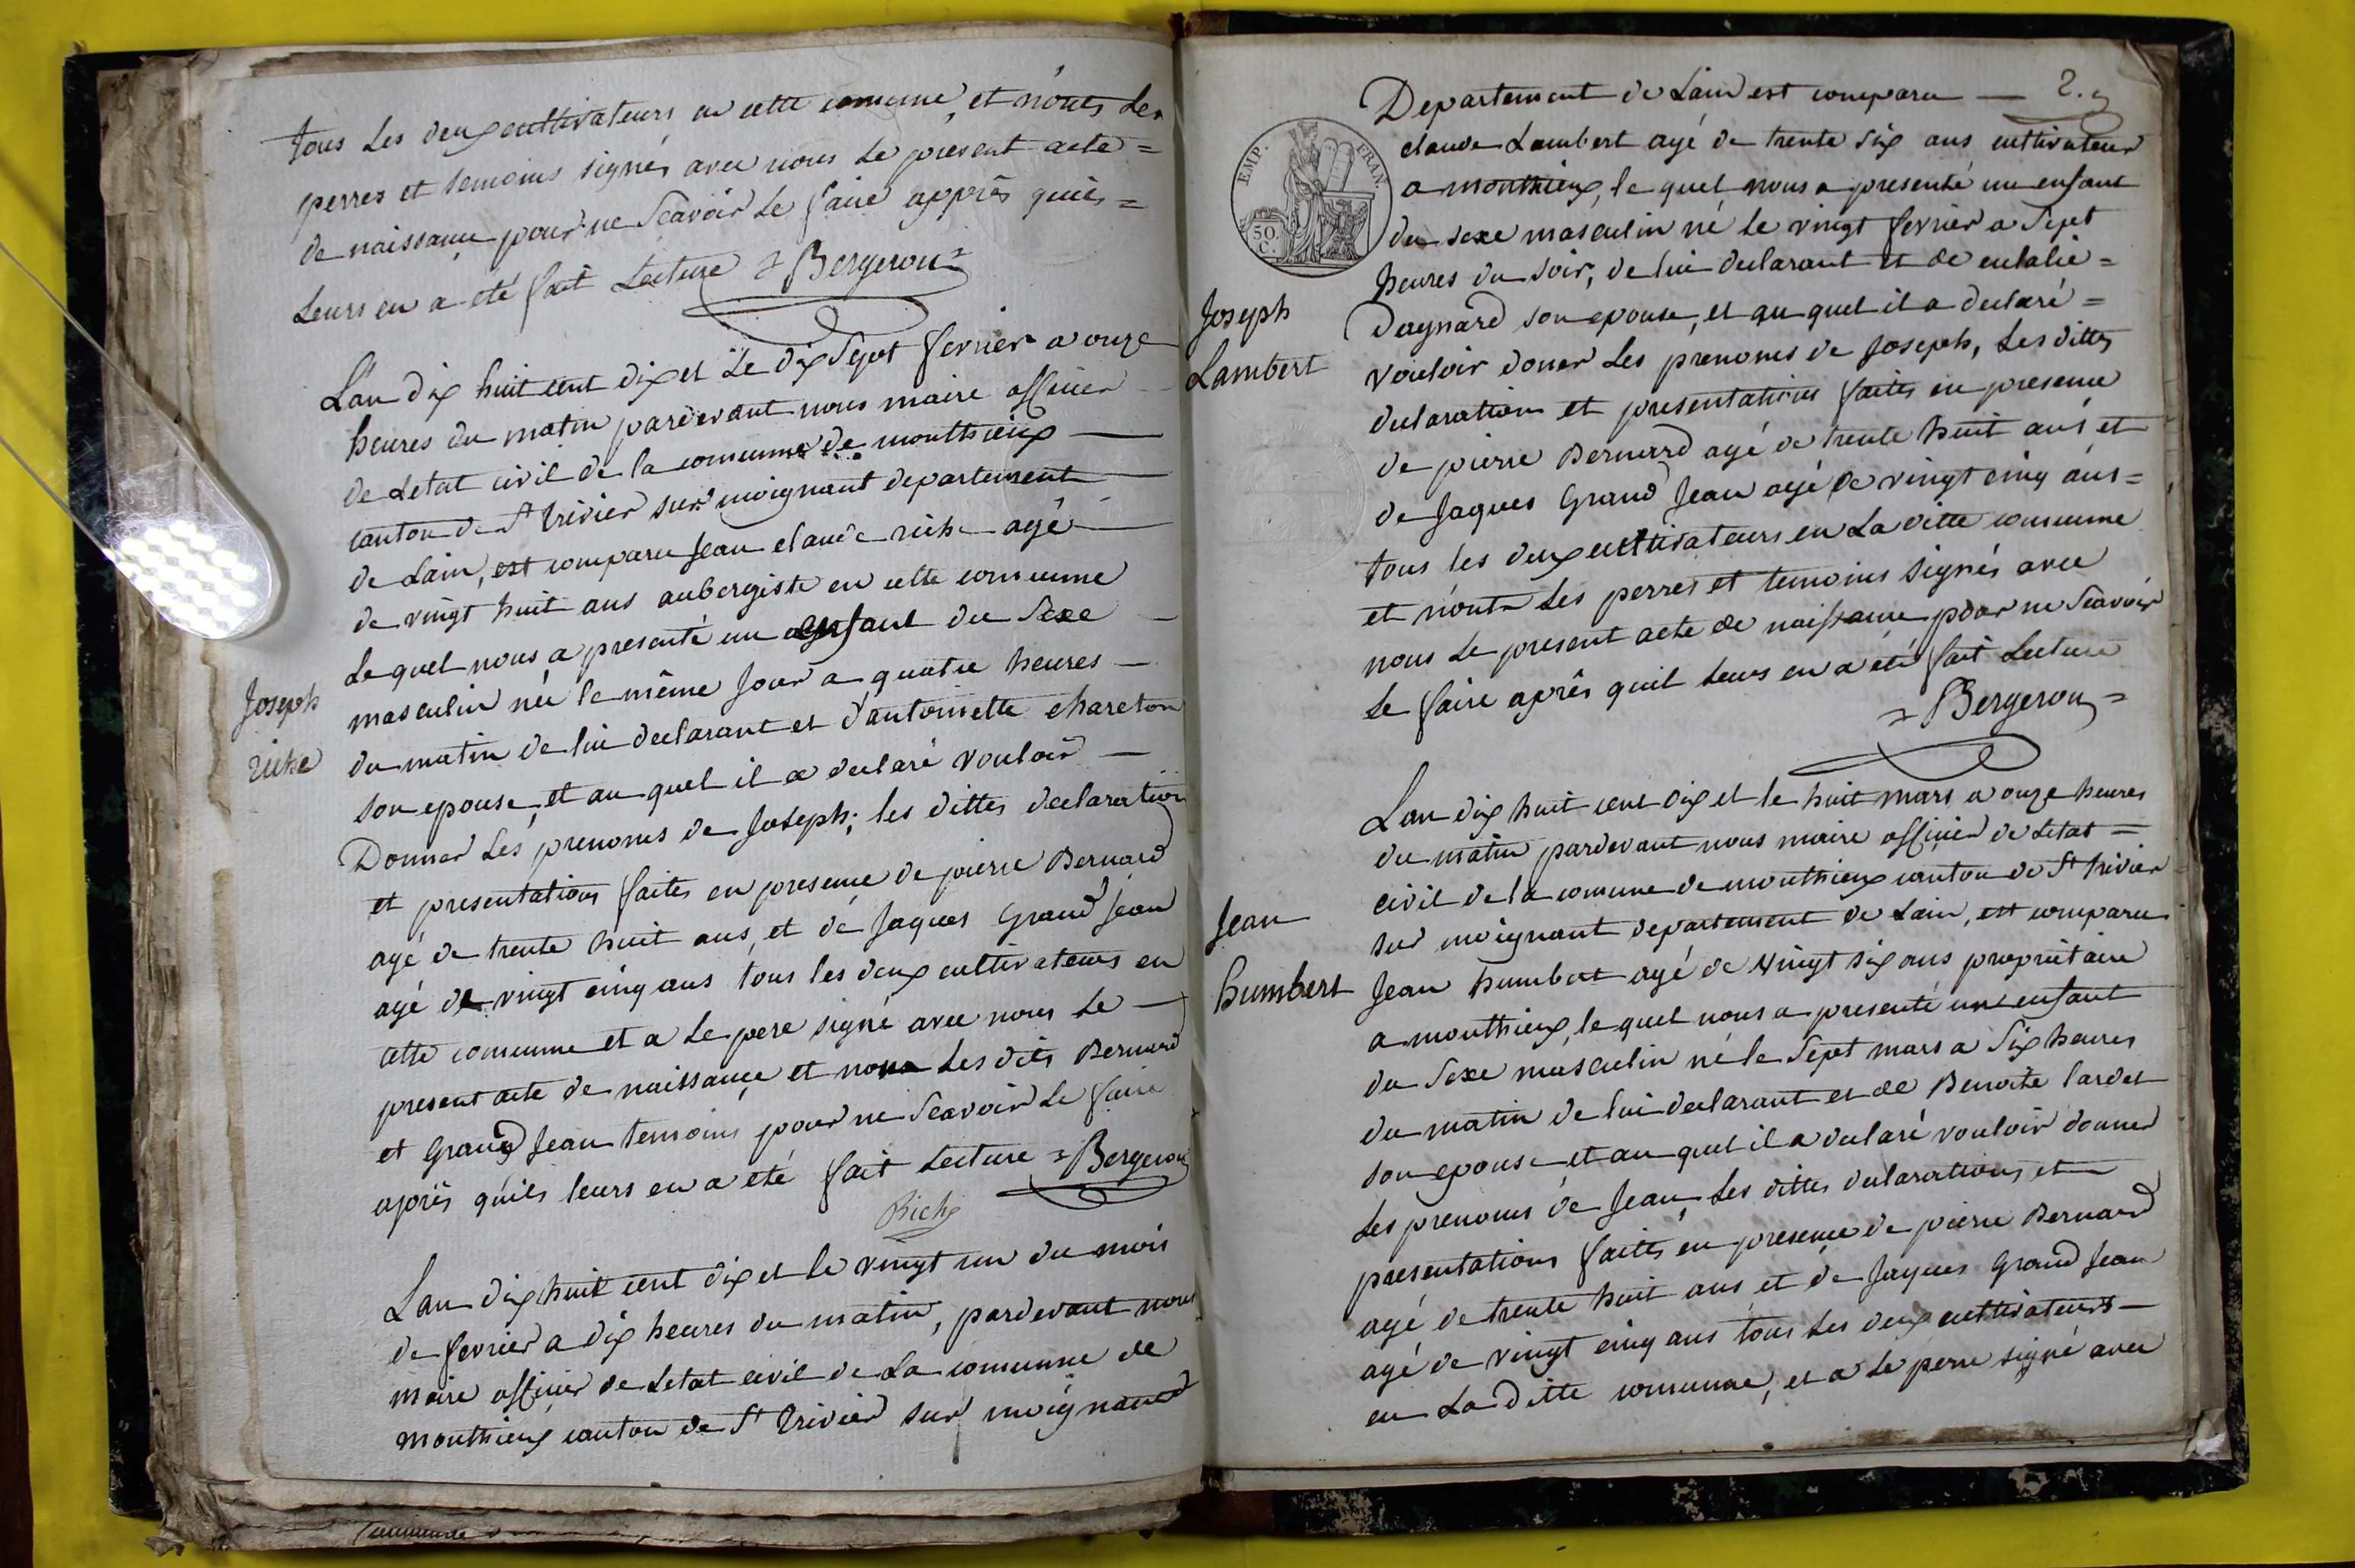 tous les deux cultivateurs en cette comune, et n'onts les
perres et temoins signés avec nous le present acte =
de naissance pour ne Scavoir le faire apprès quils =
leurs en a eté fait Lecture = Bergeron =
L'an dix huit cent dix et le dix Sept fevrier a onze
heures du matin pardevant nous maire officier
de Letat civil de la comunne de monthieux
canton de St trivier sur moignant departement
de Lain, est comparu Jean claude riche agé
de vingt huit ans aubergiste en cette comunne
Le quel nous a presenté un enfant du Sexe
masculin née le même Jour a quatre heures
du matin de lui declarant et d'antoinette chareton
son epouse, et au quel il a declaré vouloir
Donner Les prenoms de Joseph; les dittes declaration
et presentations faites en presence de pierre Bernard
agé de trente huit ans, et de Jaques Grand Jean
agé de vingt cinq ans tous les deux cultivateurs en
cette comunne et a Le pere signé avec nous Le
present acte de naissance et non Les dits Bernard
et Grand Jean temoins pour ne Scavoir Le faire
après quils leurs en a eté fait Lecture = Bergeron
Riche
Joseph
riche
Lan dix huit cent dix et le vingt un du mois
de fevrier a dix heures du matin, pardevant nous
maire officier de Letat civil de La comunne de
monthieux canton de St trivier sur moignand
2.
Departement de Lain est comparu
claude Lambert agé de trente six ans cultivateur
a monthieux, le quel nous a presenté un enfant
du sexe masculin né le vingt fevrier a Sept
heures du soir, de lui declarant et de eulalie =
Daynard son epouse, et au quel il a declaré =
vouloir doner Les prenoms de Joseph, Les dittes
declaration et presentations faites en presence
de pierre Bernard agé de trente huit ans et
de Jaques Grand Jean agé de vingt cinq ans =
tous les deux cultivateurs en La ditte comunne
et n'onts Les perres et temoins Signés avec
nous Le present acte de naissance pour ne Scavoir
Le faire après quil Leurs en a eté fait Lecture
= Bergeron =
EMP. FRAN.
50
C.
Joseph
Lambert
Lan dix huit cent dix et le huit mars a onze heures
du matin pardevant nous maire officier de Letat =
civil de la comune de monthieux canton de St trivier
sur moignant departement de Lain, est comparu
Jean humbert agé de vingt six ans proprietaire
a monthieux, le quel nous a presenté un enfant
du Sexe masculin né le Sept mars a Six heures
du matin de lui declarant et de Benoite lardet
son epouse et au quel il a declaré vouloir donner
Les prenoms de Jean, Les dittes declarations et
presentations faites en presence de pierre Bernard
agé de trente huit ans et de Jaques Grand Jean
agé de vingt cinq ans tous Les deux cultivateurs
en La ditte comunne, et a Le perre signé avec
Jean
humbert